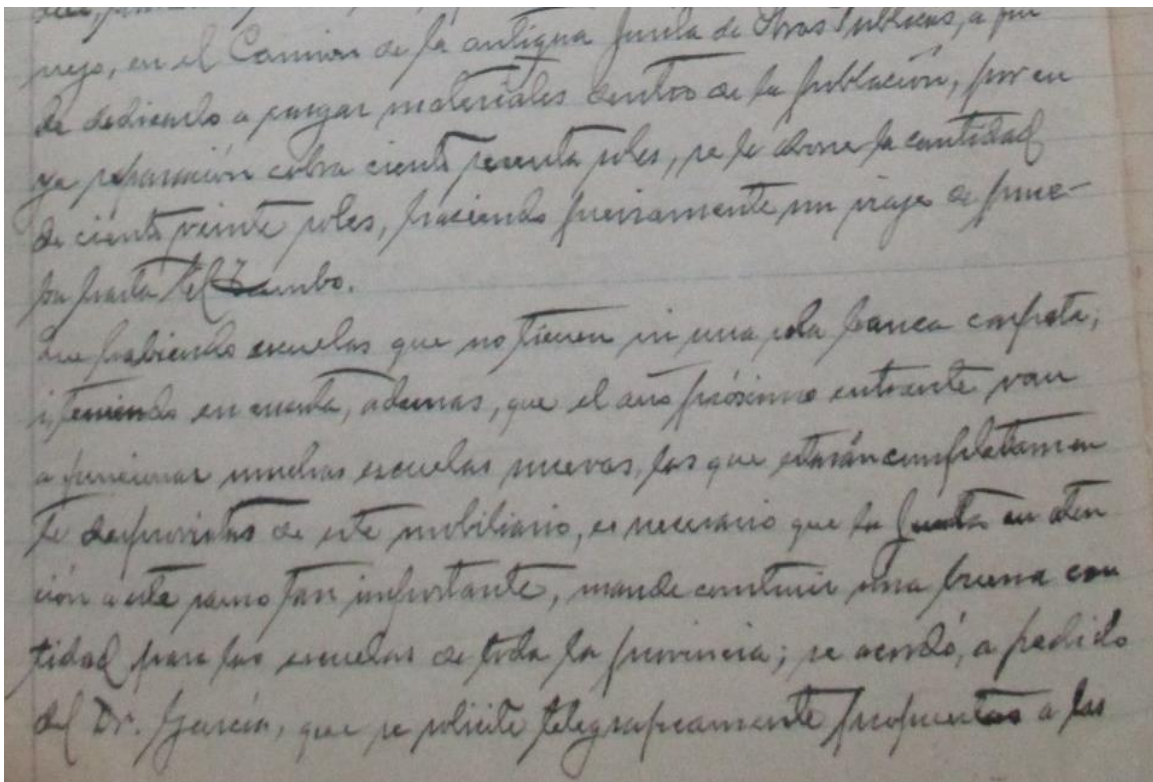 nejo, en el Camion de la antigua Junta de Obras Publicas, a fin
de dedicarlo a cargar materiales dentro de la población, por cu
ya reparación cobra ciento sesenta soles, se le abone la cantidad
de ciento veinte soles, haciendo previamente un viaje de prue-
ba hasta "El Tambo.
Que habiendo escuelas que no tienen ni una sola banca carpeta;
i, teniendo en cuenta, ademas, que el año próximo entrante van
a funcionar muchas escuelas nuevas, las que estarán completamen
te desprovistas de este mobiliario, es necesario que la Junta en aten
ción a este ramo tan importante, mande construir una buena can
tidad para las escuelas de toda la provincia; se acordó, a pedido
del Dr. García, que se solicite telegraficamente propuestas a las